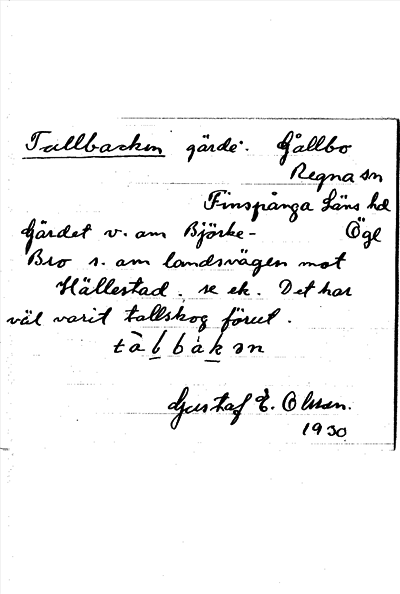 Tallbacken gärde. Gållbo
Regna sn
Finspånga Läns hd
Gärdet v. om Björke- Ögl
Bro s. om landsvägen mot
Hällestad. se ek. Det har
väl varit tallskog förut.
tàlbàkən
Gustaf E. Olsson.
1930